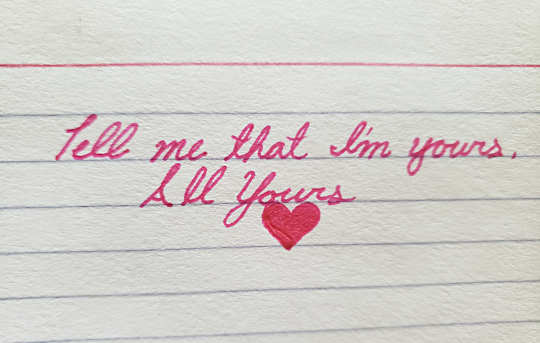 Tell me that I'm yours.
All Yours